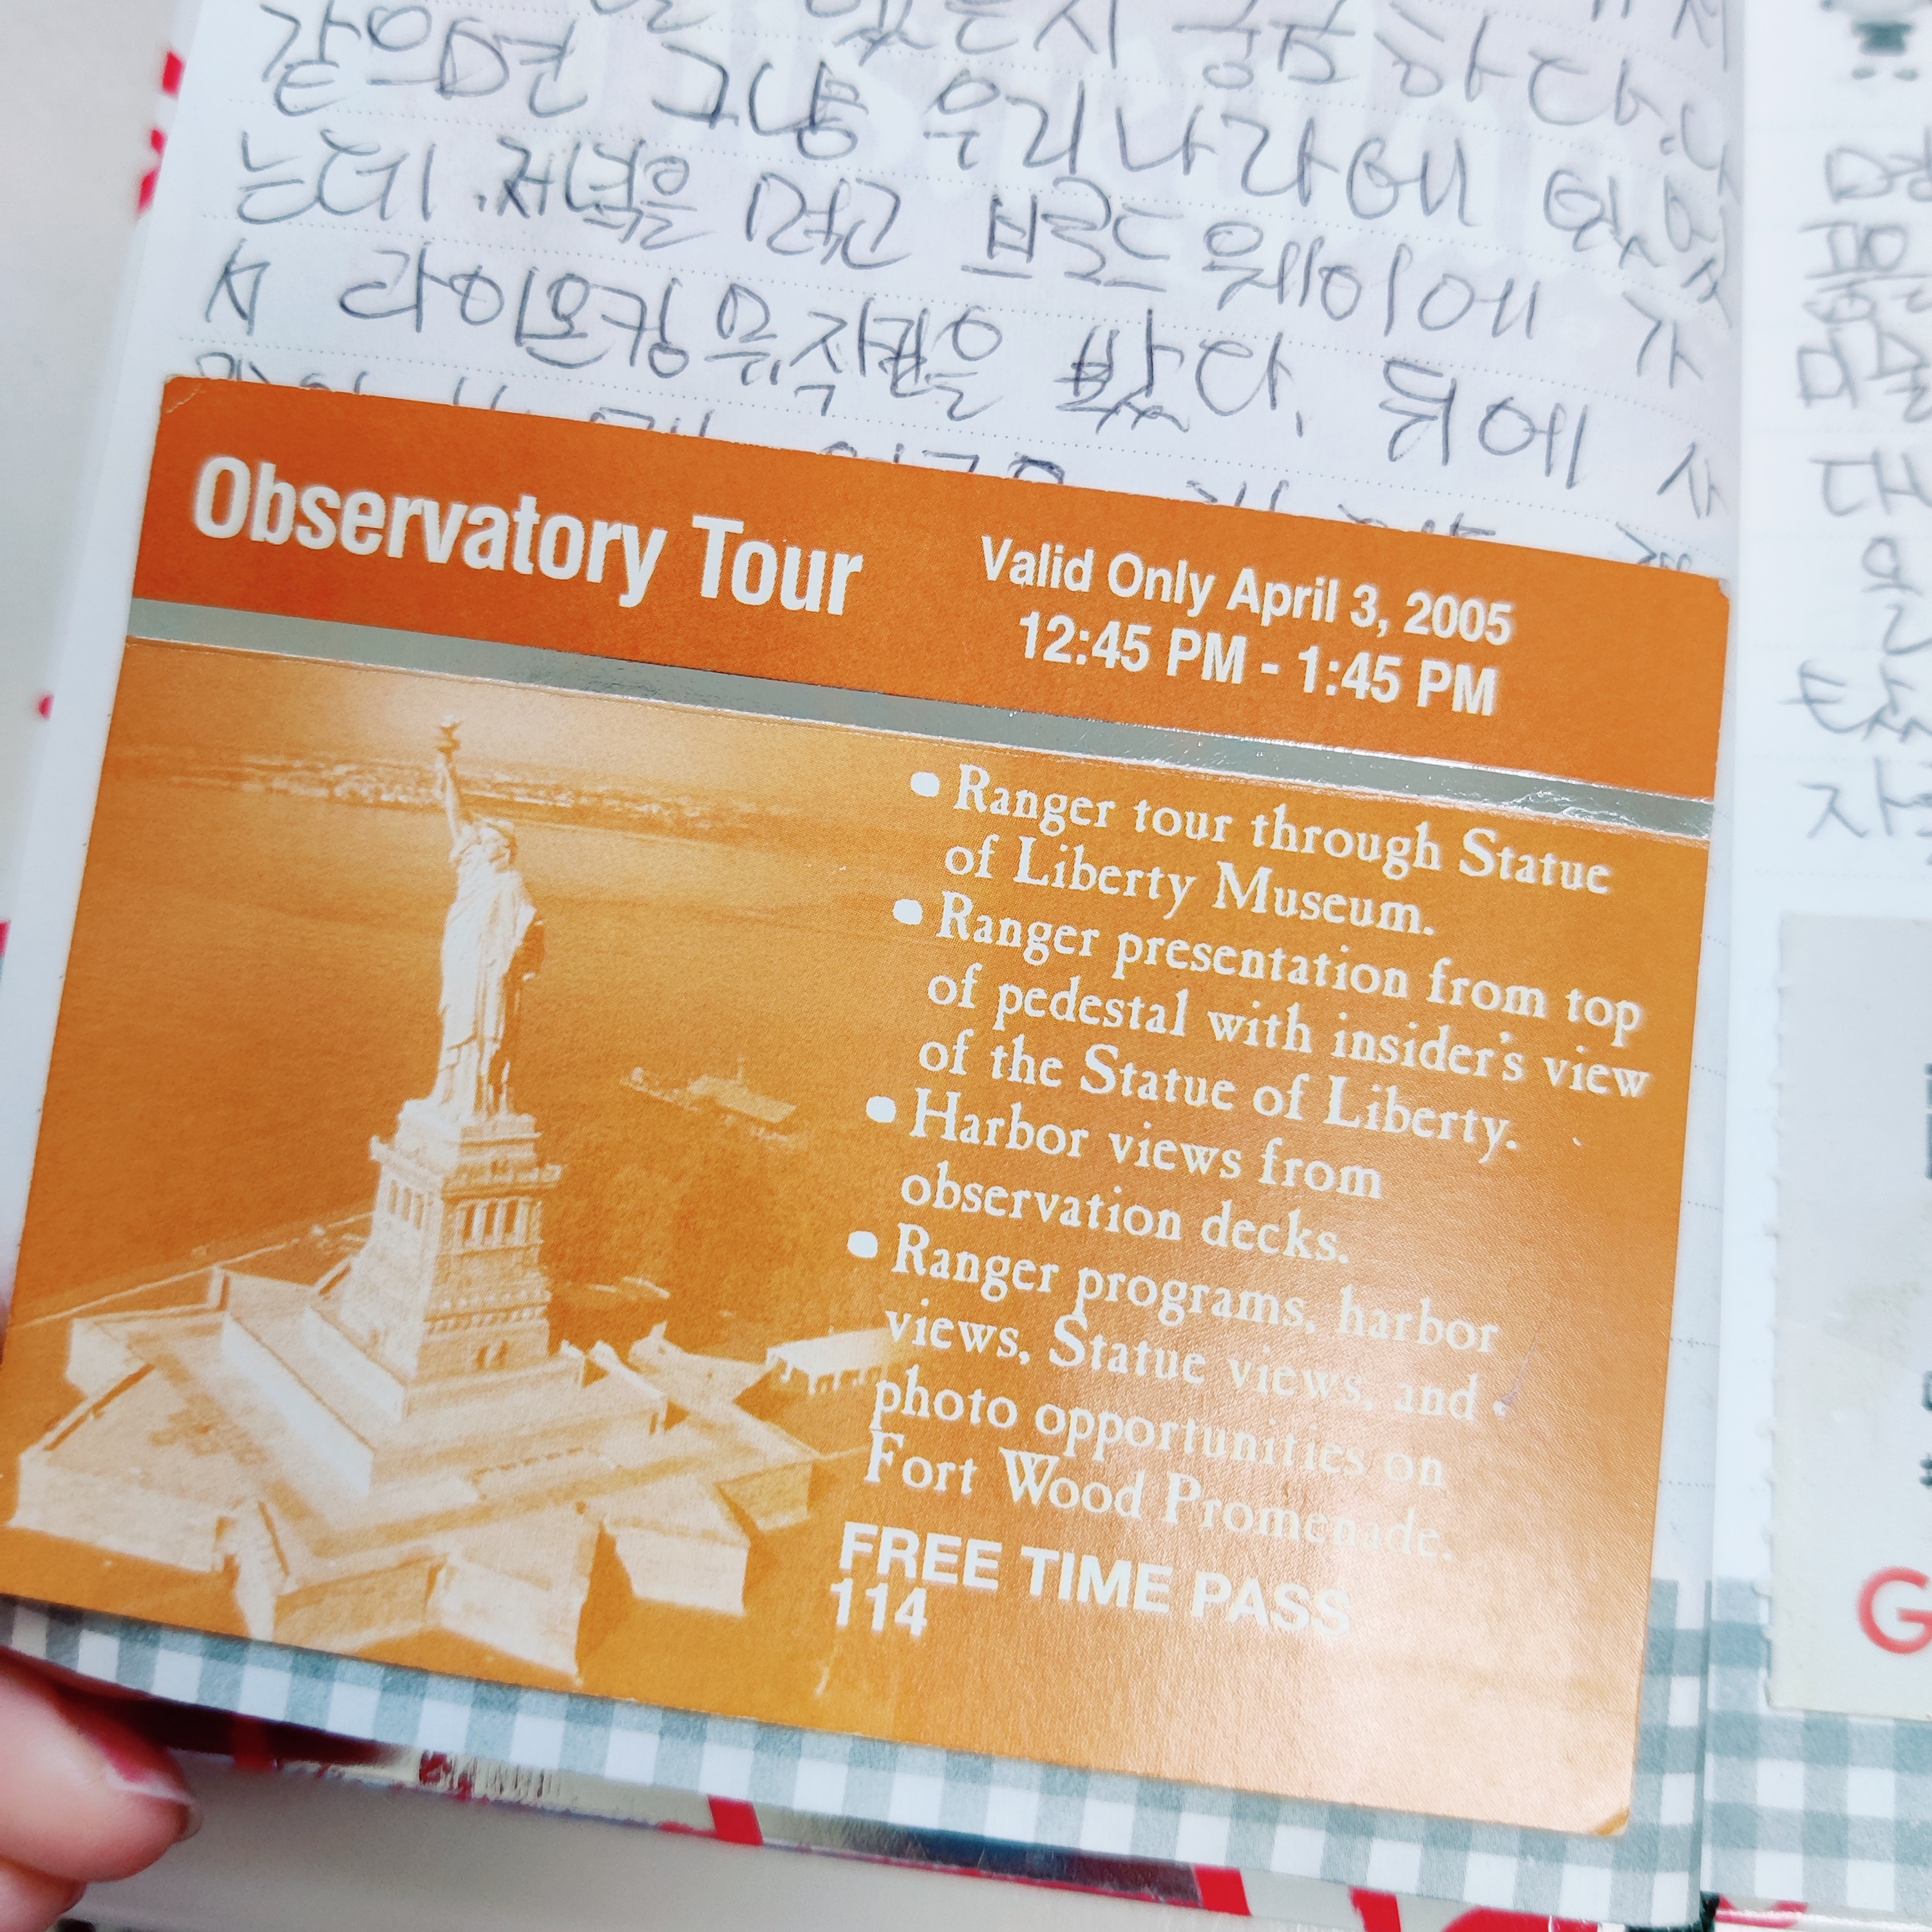 궁금하다.
같으면 그냥 우리나라에 있었
는데. 저녁을 먹고 브로드웨이에 가
서 라이온킹 뮤지컬을 봤다. 뒤에
Observatory Tour
Valid Only April 3, 2005
12:45 PM - 1:45 PM
• Ranger tour through Statue
of Liberty Museum.
• Ranger presentation from top
of pedestal with insider's view
of the Statue of Liberty.
• Harbor views from
observation decks.
• Ranger programs, harbor
views, Statue views, and
photo opportunities on
Fort Wood Promenade.
FREE TIME PASS
114
G